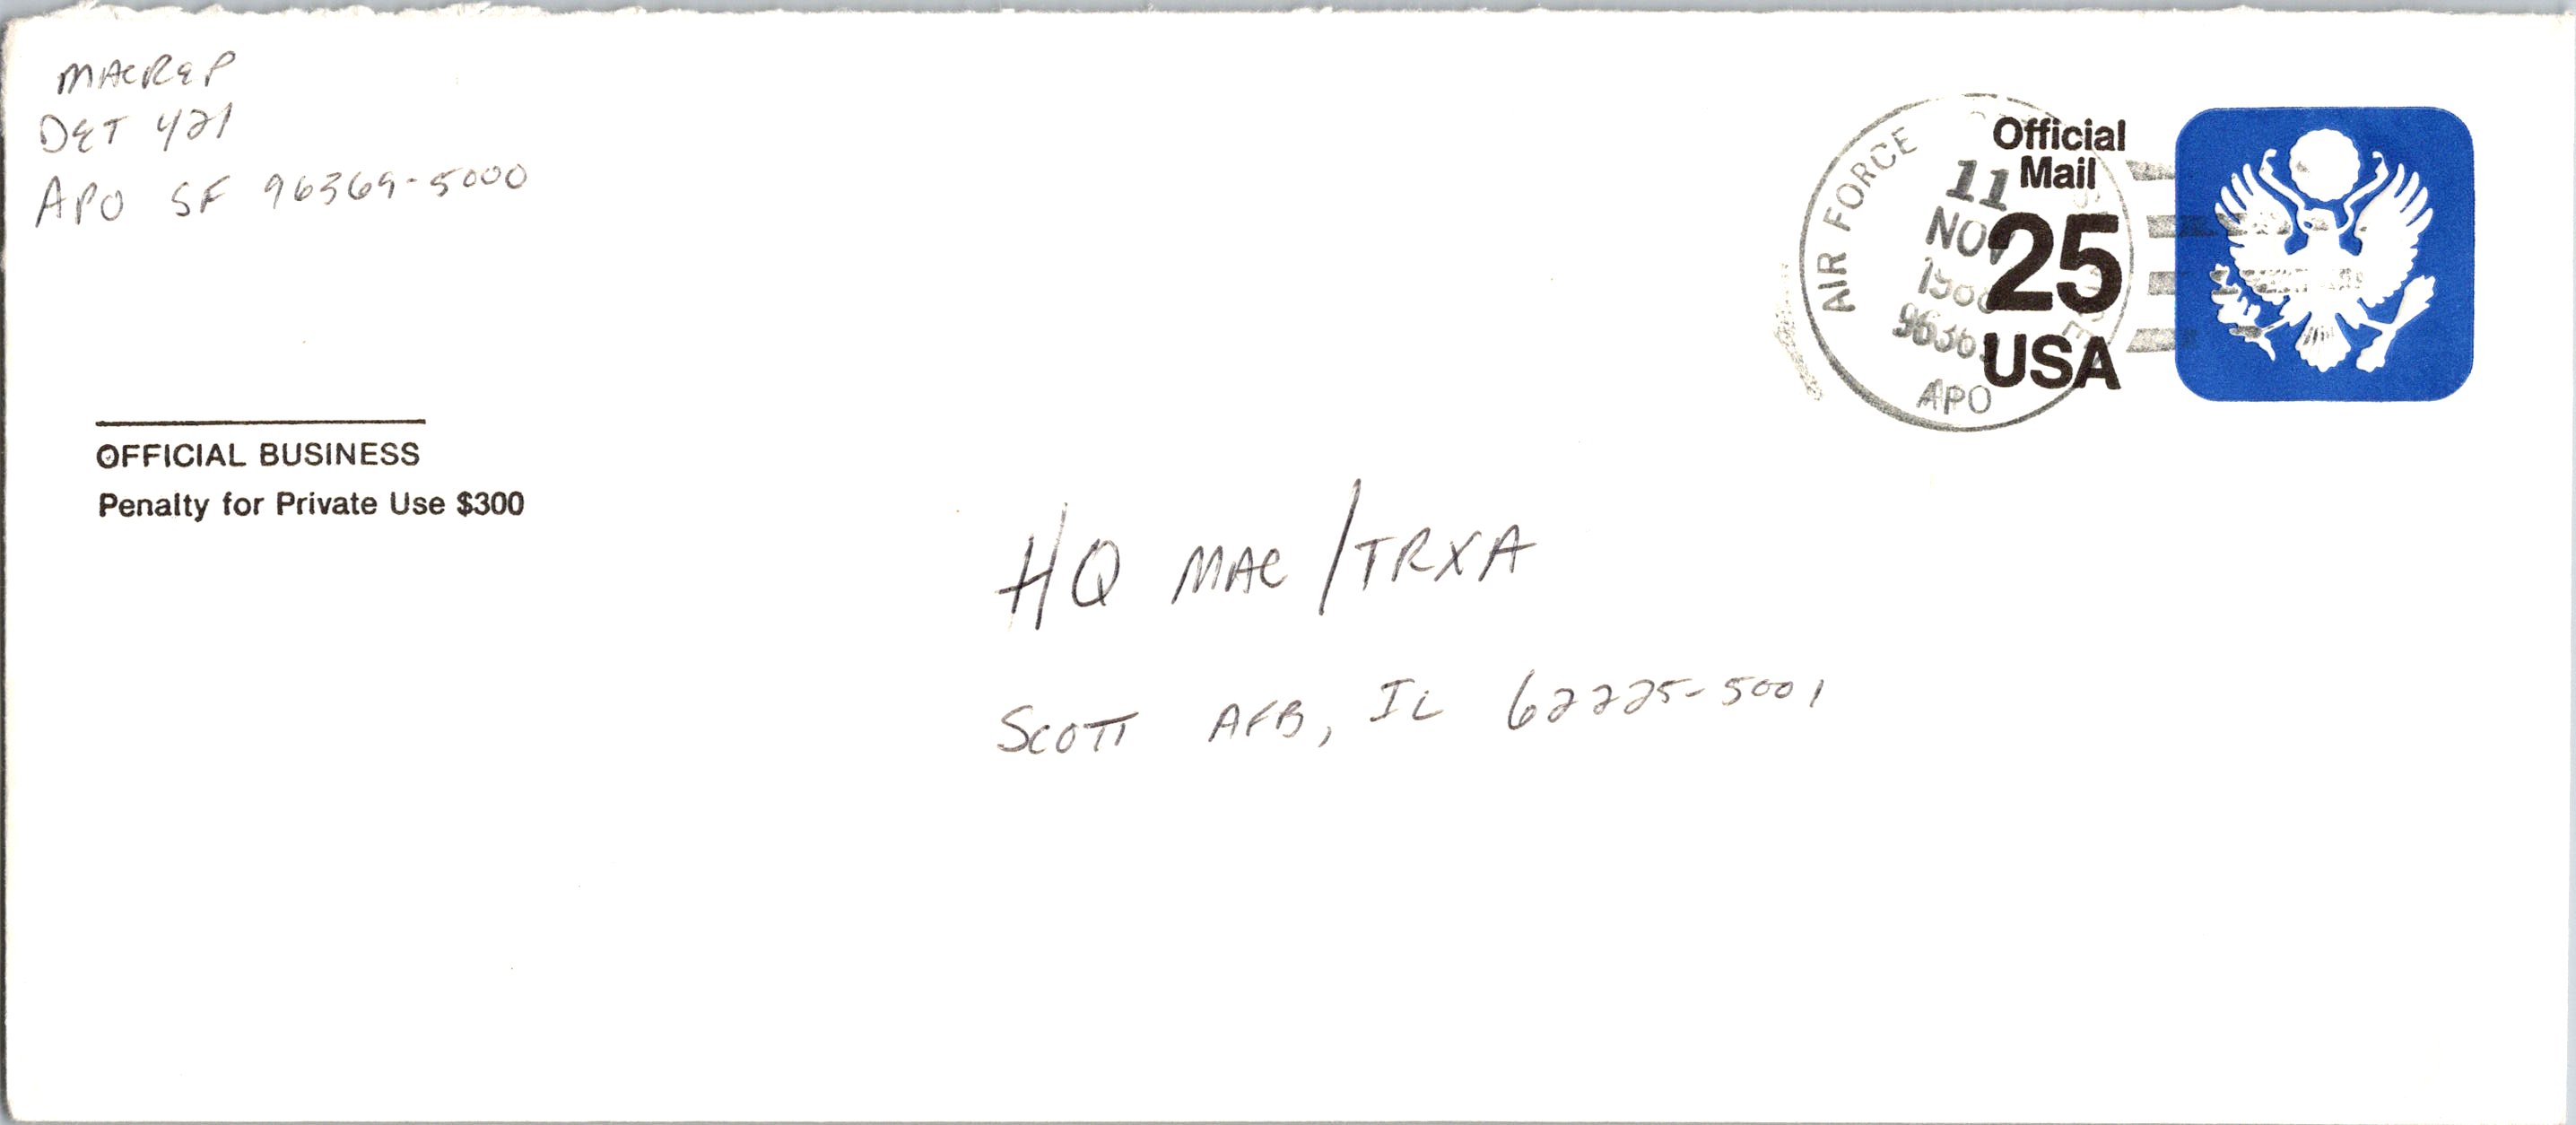 MACREP
DET 421
APO SF 96369-5000
OFFICIAL BUSINESS
Penalty for Private Use $300
AIR FORCE
11
NOV
APO
Official
Mail
25
USA
HQ MAC/TRXA
SCOTT AFB, IL 62225-5001